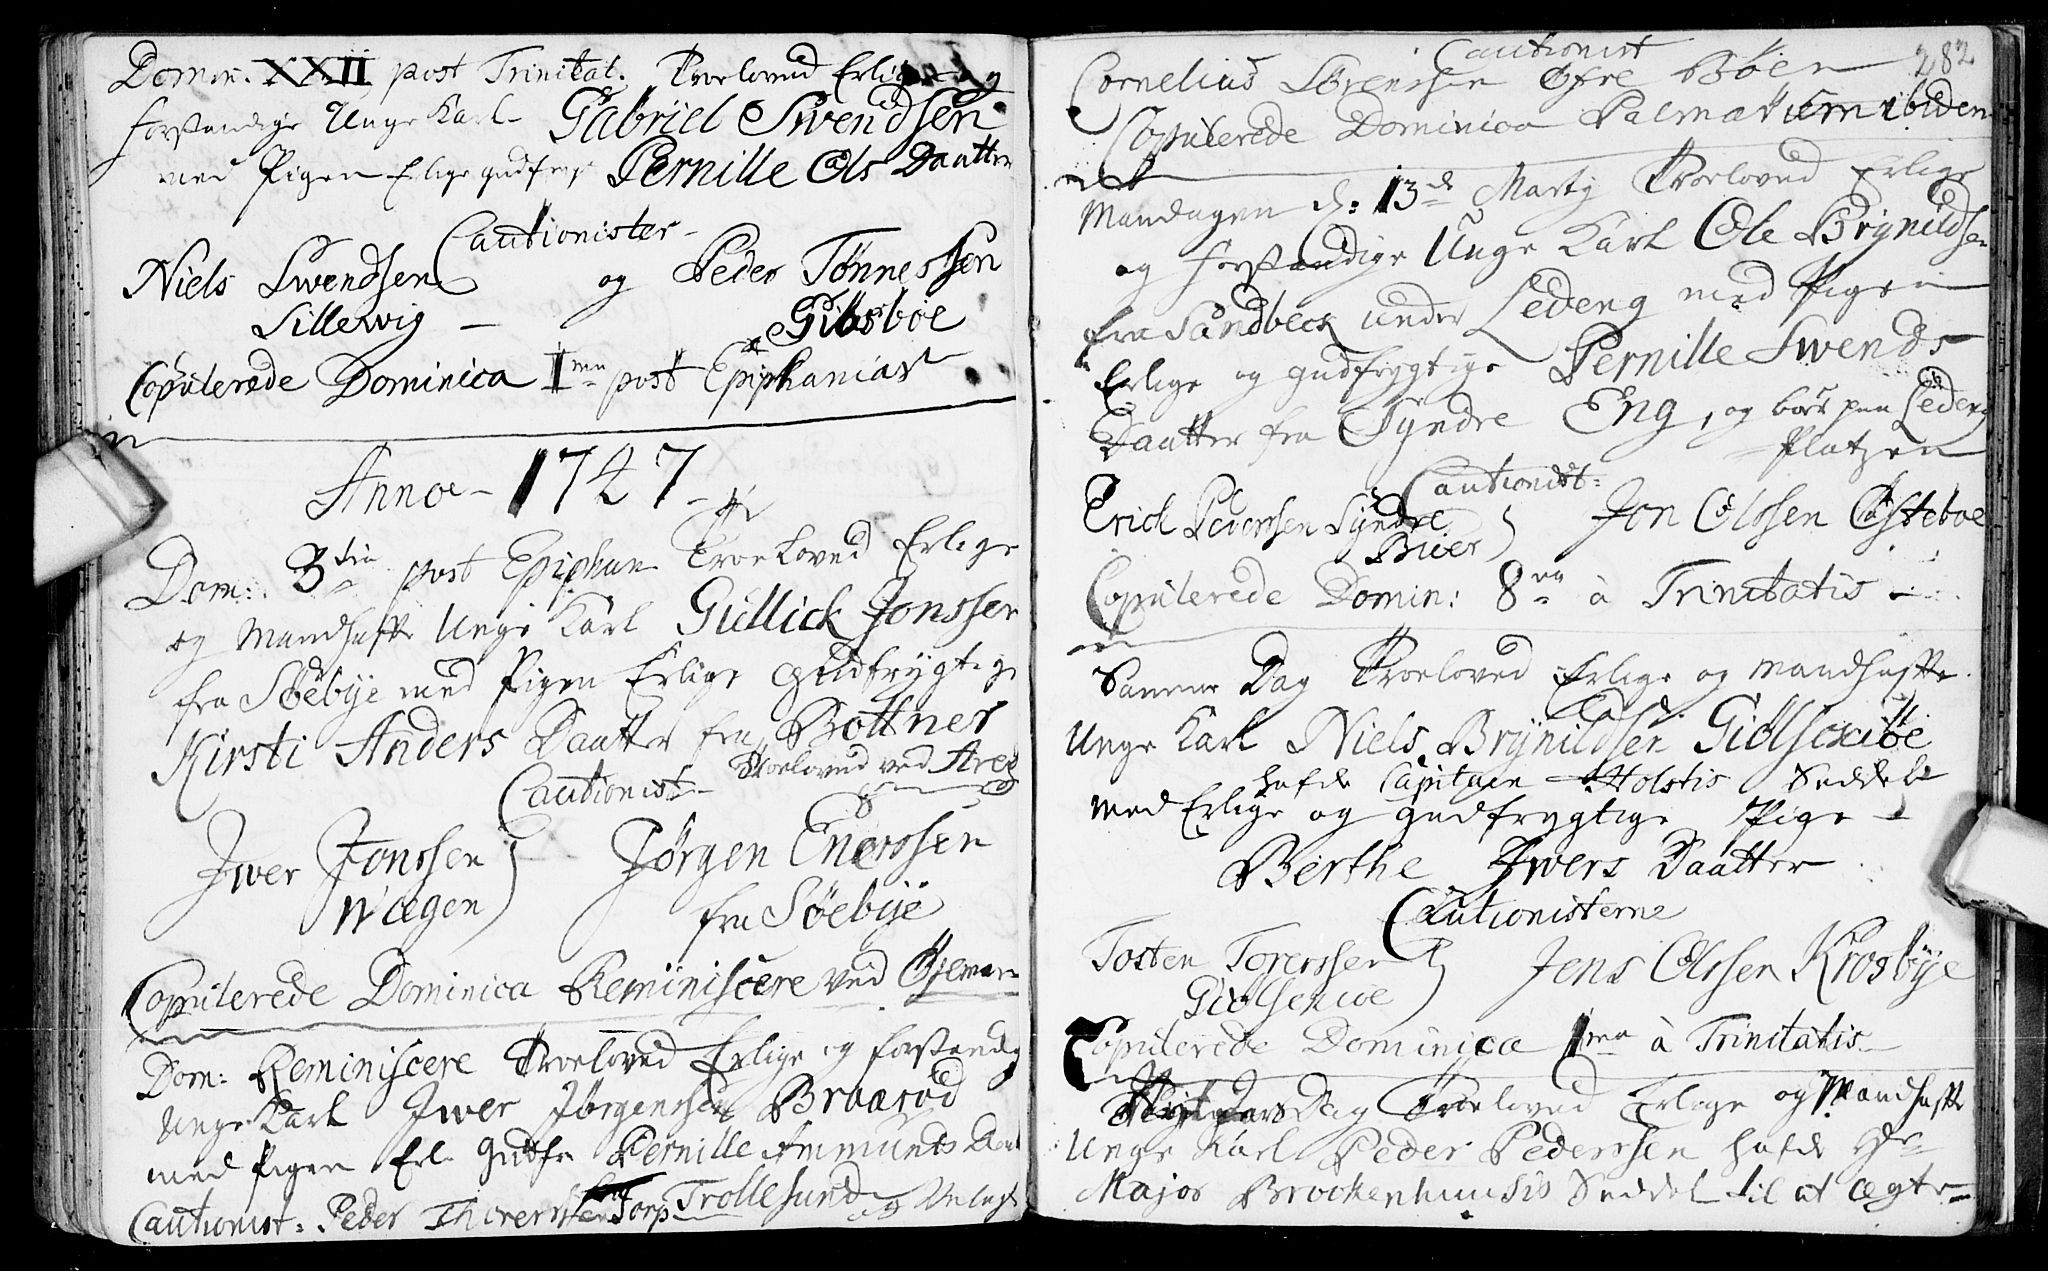 Domin. XXII post Trinitat. Troeloved Erlige og
forstandige Unge Karl Gabriel Swendsen
med Pigen Erlige gudfrygt Pernille Ols Daatter
Cautionister
Niels Swendsen og Peder Tønnessen
Sillewig Gibsboe
Copulerede Dominica 1ma post Epiphanias
Annoe 1747
Dom: 3tia post Epiphan Troeloved Erlige
og Mandhafte Unge Karl Gullick Jonssen
fra Søebye med Pigen Erlige gudfrygtige
Kirsti Anders Daatter fra Bottner
Cautionist Troeloved ved Are
Iwer Jonssen Jørgen Enerssen
Wægen fra Søebye
Copulerede Dominica Reminiscere ved
Dom: Reminiscere Troeloved Erlige og forstandig
Unge Karl Iwer Jørgenssen Braarød
med Pigen Erl. Gudfr Pernille Ammunds Daat
Cautionist: Peder Torp Trollesund og
282
Cautionist
Cornelius Sørenssen Øfre Bøen
Copulerede Dominica Palmarum ibidem
Mandagen d: 13de Martj Troeloved Erlige
og forstandige Unge Karl Ole Brynildsen
fra Sandbeck under Ledeng med Pigen
Erlige og gudfrygtige Pernille Swends
Daatter fra Syndre Eng, og boer paa Ledeng
Platzen
Cautionist:
Erick Pederssen Syndre Jon Olssen Østeboe
Buer
Copulerede Domin: 8va à Trinitatis
Samme Dag Troeloved Erlige og mandhafte
Unge Karl Niels Brynildsen Gidlschioe
hafde Capitain Holstis Seddel
med Erlige og gudfrygtige Pige
Berthe Iwers Daatter
Cautionisterne
Tosten Torerssen Jens Olssen Krosbye
Copulerede Dominica 1ma à Trinitatis
Dag Troeloved Erlige og Mandhafte
Unge Karl Peder Pederssen hafde Hr
Major Brockenhuusis Seddel til at ægte